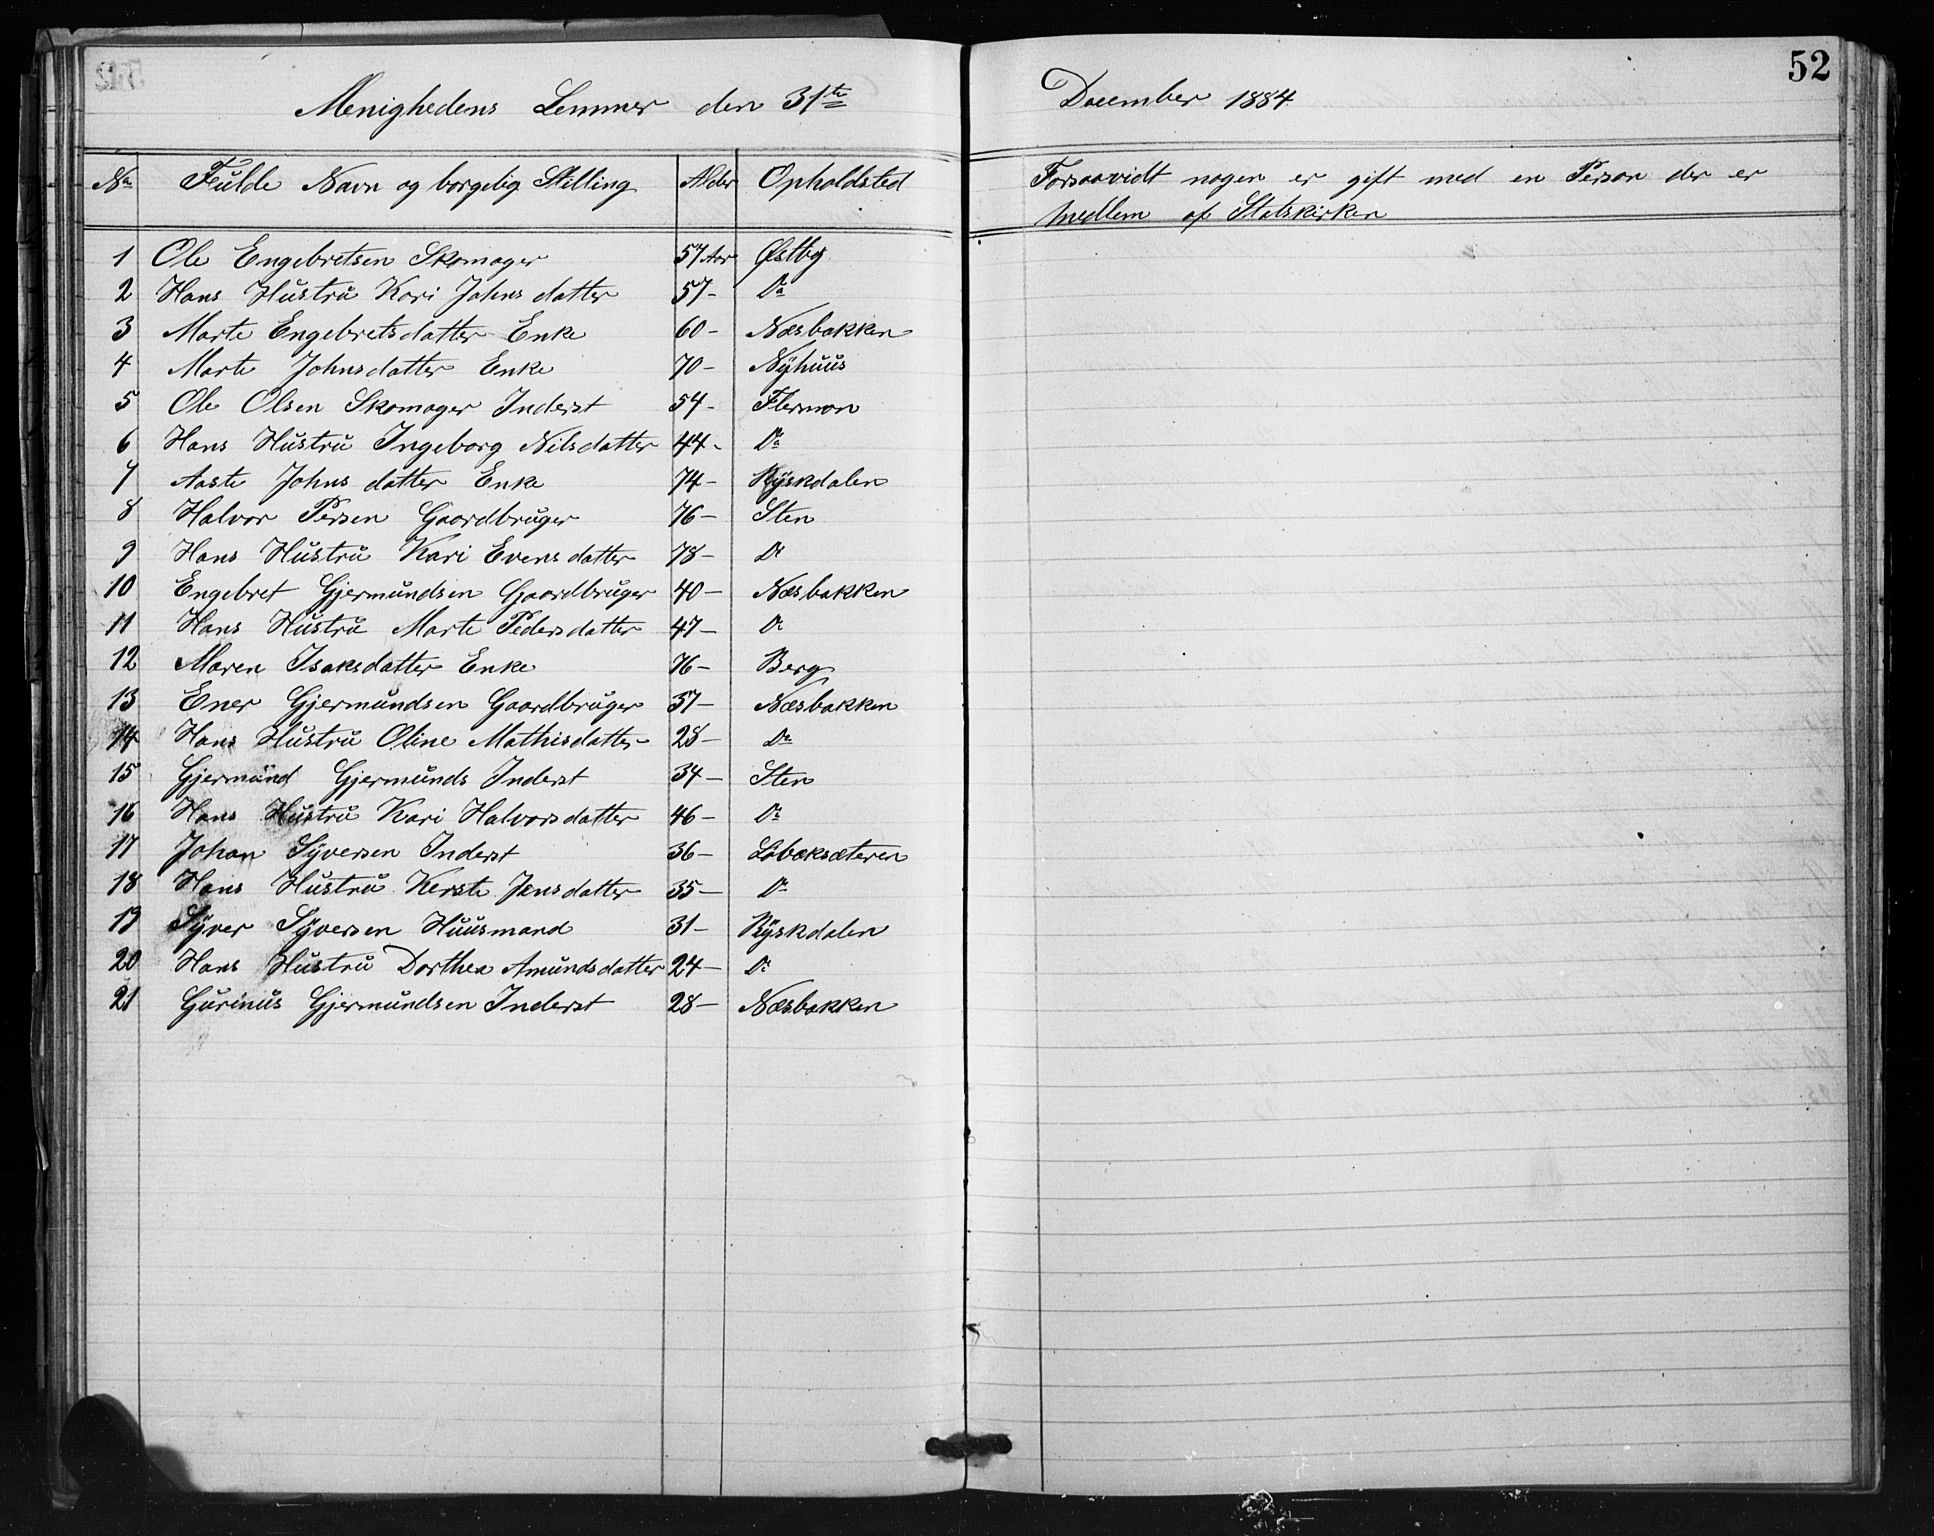 52
Menighedens Lemmer den 31te December 1884
No Fulde Navn og borgelig Stilling Alder Opholdsted Forsaavidt nogen er gift med en Person der er
Medlem af Statskirken
1 Ole Engebretsen Skomager 57 Aar Østby
2 Hans Hustru Kari Johnsdatter 57- Do
3 Marte Engebretsdatter Enke 60- Næsbakken
4 Marte Johnsdatter Enke 70- Nÿhuus
5 Ole Olsen Skomager Inderst 54- Flermon
6 Hans Hustru Ingeborg Nilsdatter 44- Do
7 Aaste Johnsdatter Enke 74- Rÿskdalen
8 Halvor Persen Gaardbruger 76- Sten
9 Hans Hustru Kari Evensdatter 78- Do
10 Engebret Gjermundsen Gaardbruger 40- Næsbakken
11 Hans Hustru Marte Pedersdatter 47- Do
12 Maren Isaksdatter Enke 76- Berg
13 Ener Gjermundsen Gaardbruger 37- Næsbakken
14 Hans Hustru Oline Mathisdatter 28- Do
15 Gjermund Gjermunds Inderst 34- Sten
16 Hans Hustru Kari Halvorsdatter 46- Do
17 Johan Sÿversen Inderst 36- Løbæksæteren
18 Hans Hustru Kerste Jensdatter 35- Do
19 Sÿver Sÿversen Huusmand 31- Rÿskdalen
20 Hans Hustru Dorthea Amundsdatter 24- Do
21 Gurinus Gjermundsen Inderst 28- Næsbakken